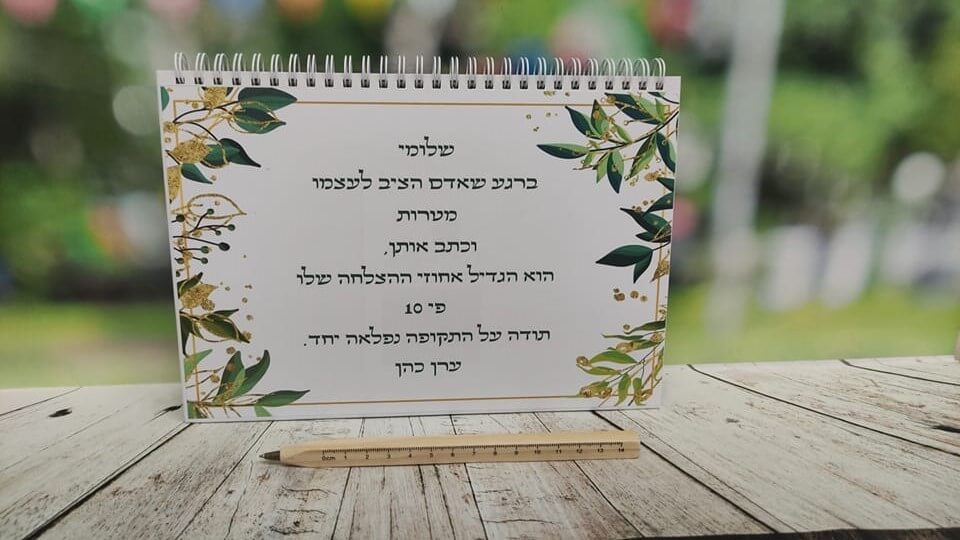 שלומי
ברגע שאדם הציב לעצמו
מטרות
וכתב אותן,
הוא הגדיל אחוזי ההצלחה שלו
פי 10
תודה על התקופה נפלאה יחד.
ערן כהן
0cm 1 2 3 4 5 6 7 8 9 10 11 12 13 14